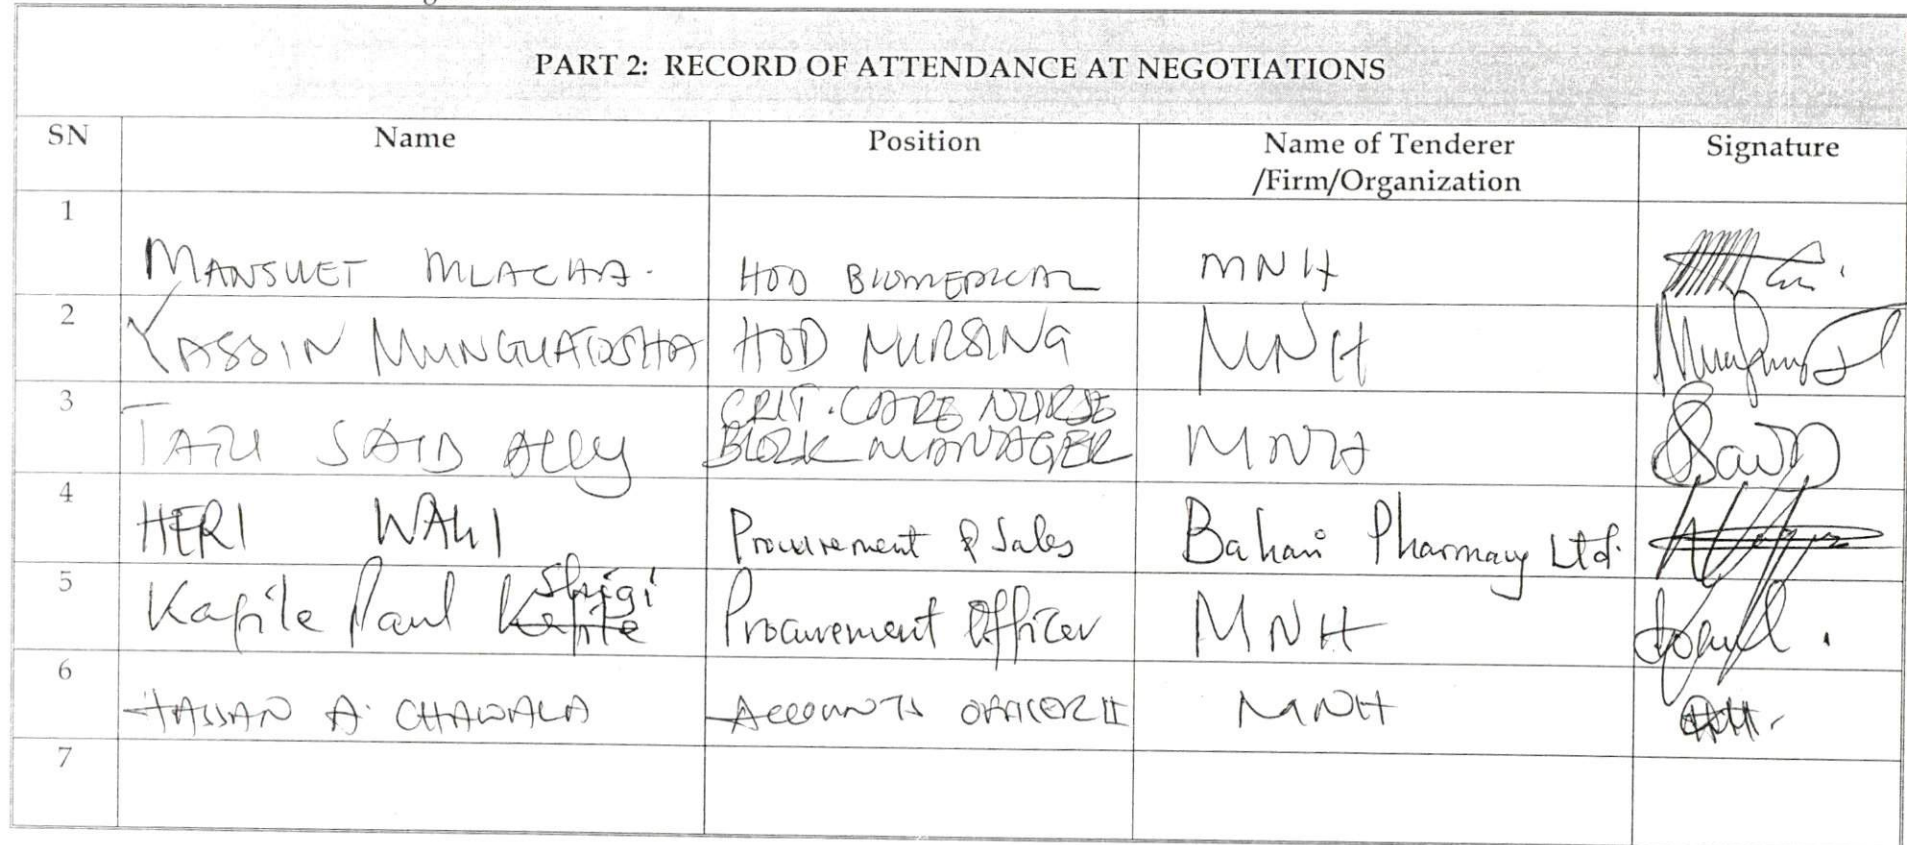 PART 2: RECORD OF ATTENDANCE AT NEGOTIATIONS
SN Name Position Name of Tenderer /Firm/Organization Signature
1 MANSUET MLACHA. HOD BIOMEDICAL MNH
2 YASSIN MUNGUATOSHA HOD NURSING MNH
3 TATU SAID Ally CRIT. CARE NURSE BLOCK MANAGER MNH
4 HERI WALI Procurement & Sales Bahari Pharmacy Ltd.
5 Kapile Paul Shigi Procurement Officer MNH
6 HASSAN A. CHAWALA ACCOUNTS OFFICER II MNH
7